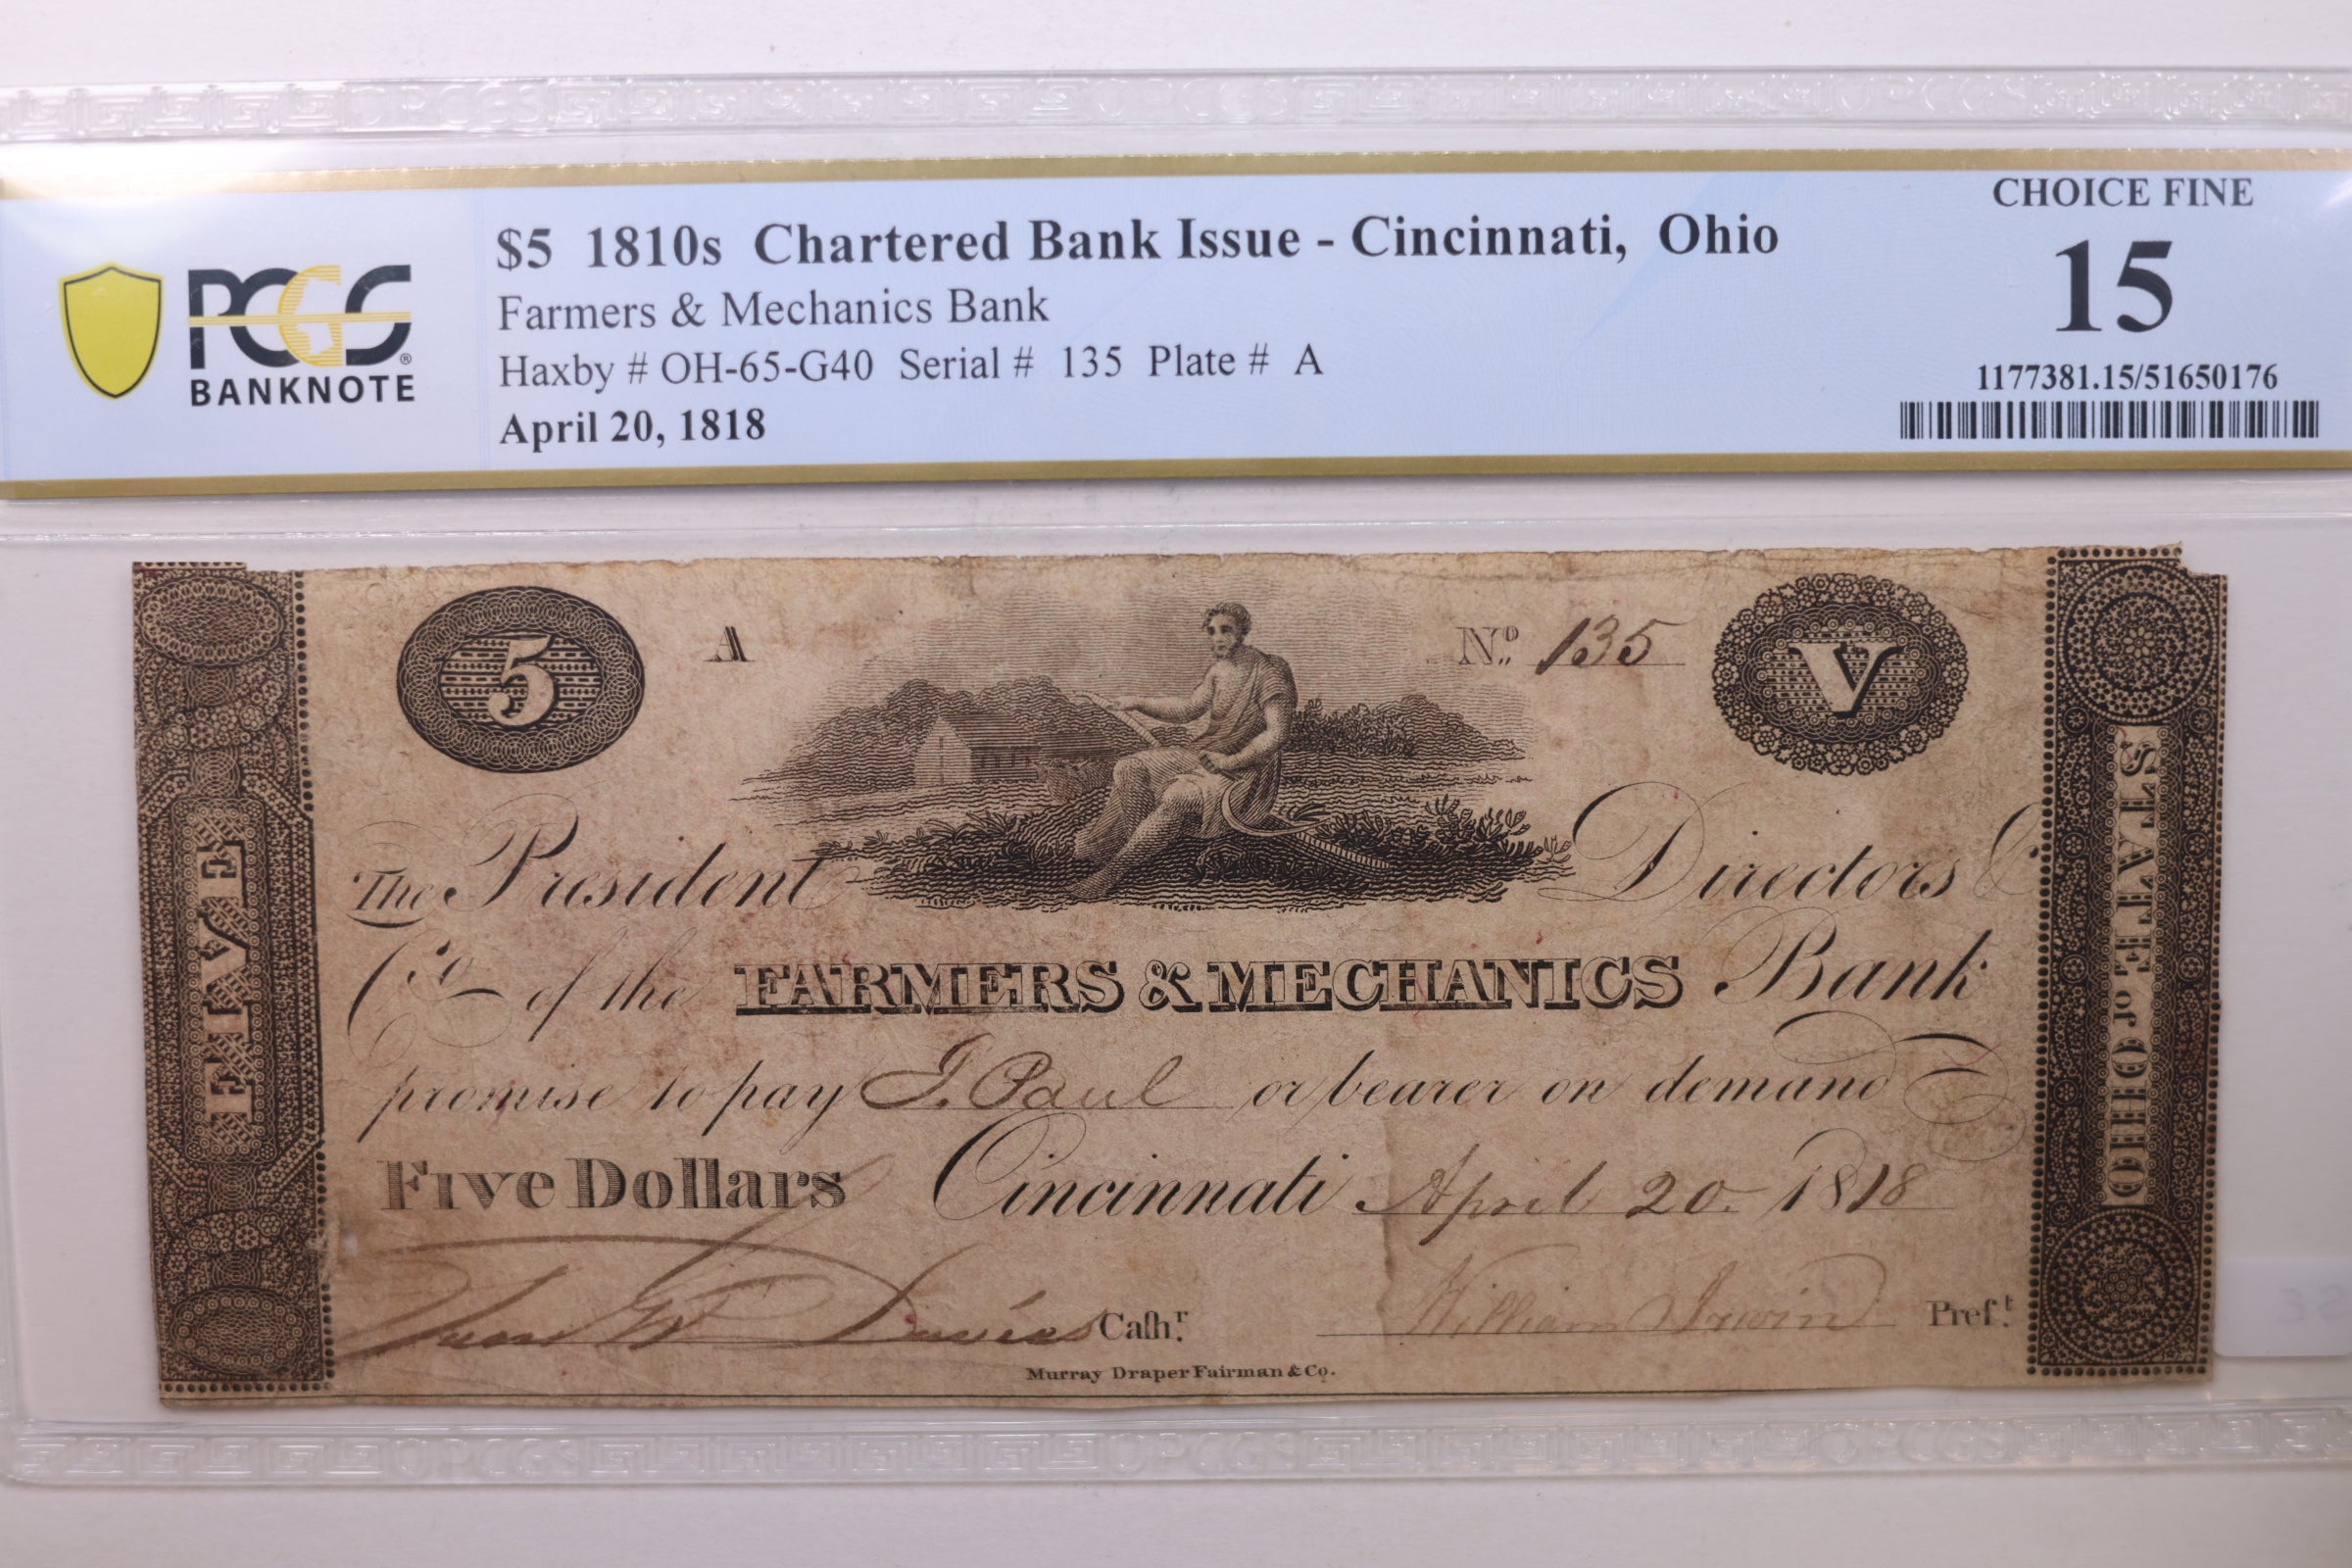 CHOICE FINE
$5 1810s Chartered Bank Issue - Cincinnati, Ohio
15
PCGS®
BANKNOTE
Farmers & Mechanics Bank
Haxby # OH-65-G40 Serial # 135 Plate # A
1177381.15/51650176
April 20, 1818
5
A
No. 135
V
FIVE
STATE of OHIO
The President Directors &
Co. of the FARMERS & MECHANICS Bank
promise to pay J. Paul or bearer on demand
Five Dollars Cincinnati April 20. 1818
Davies Caſhr. William Irwin Preſt.
Murray Draper Fairman & Co.